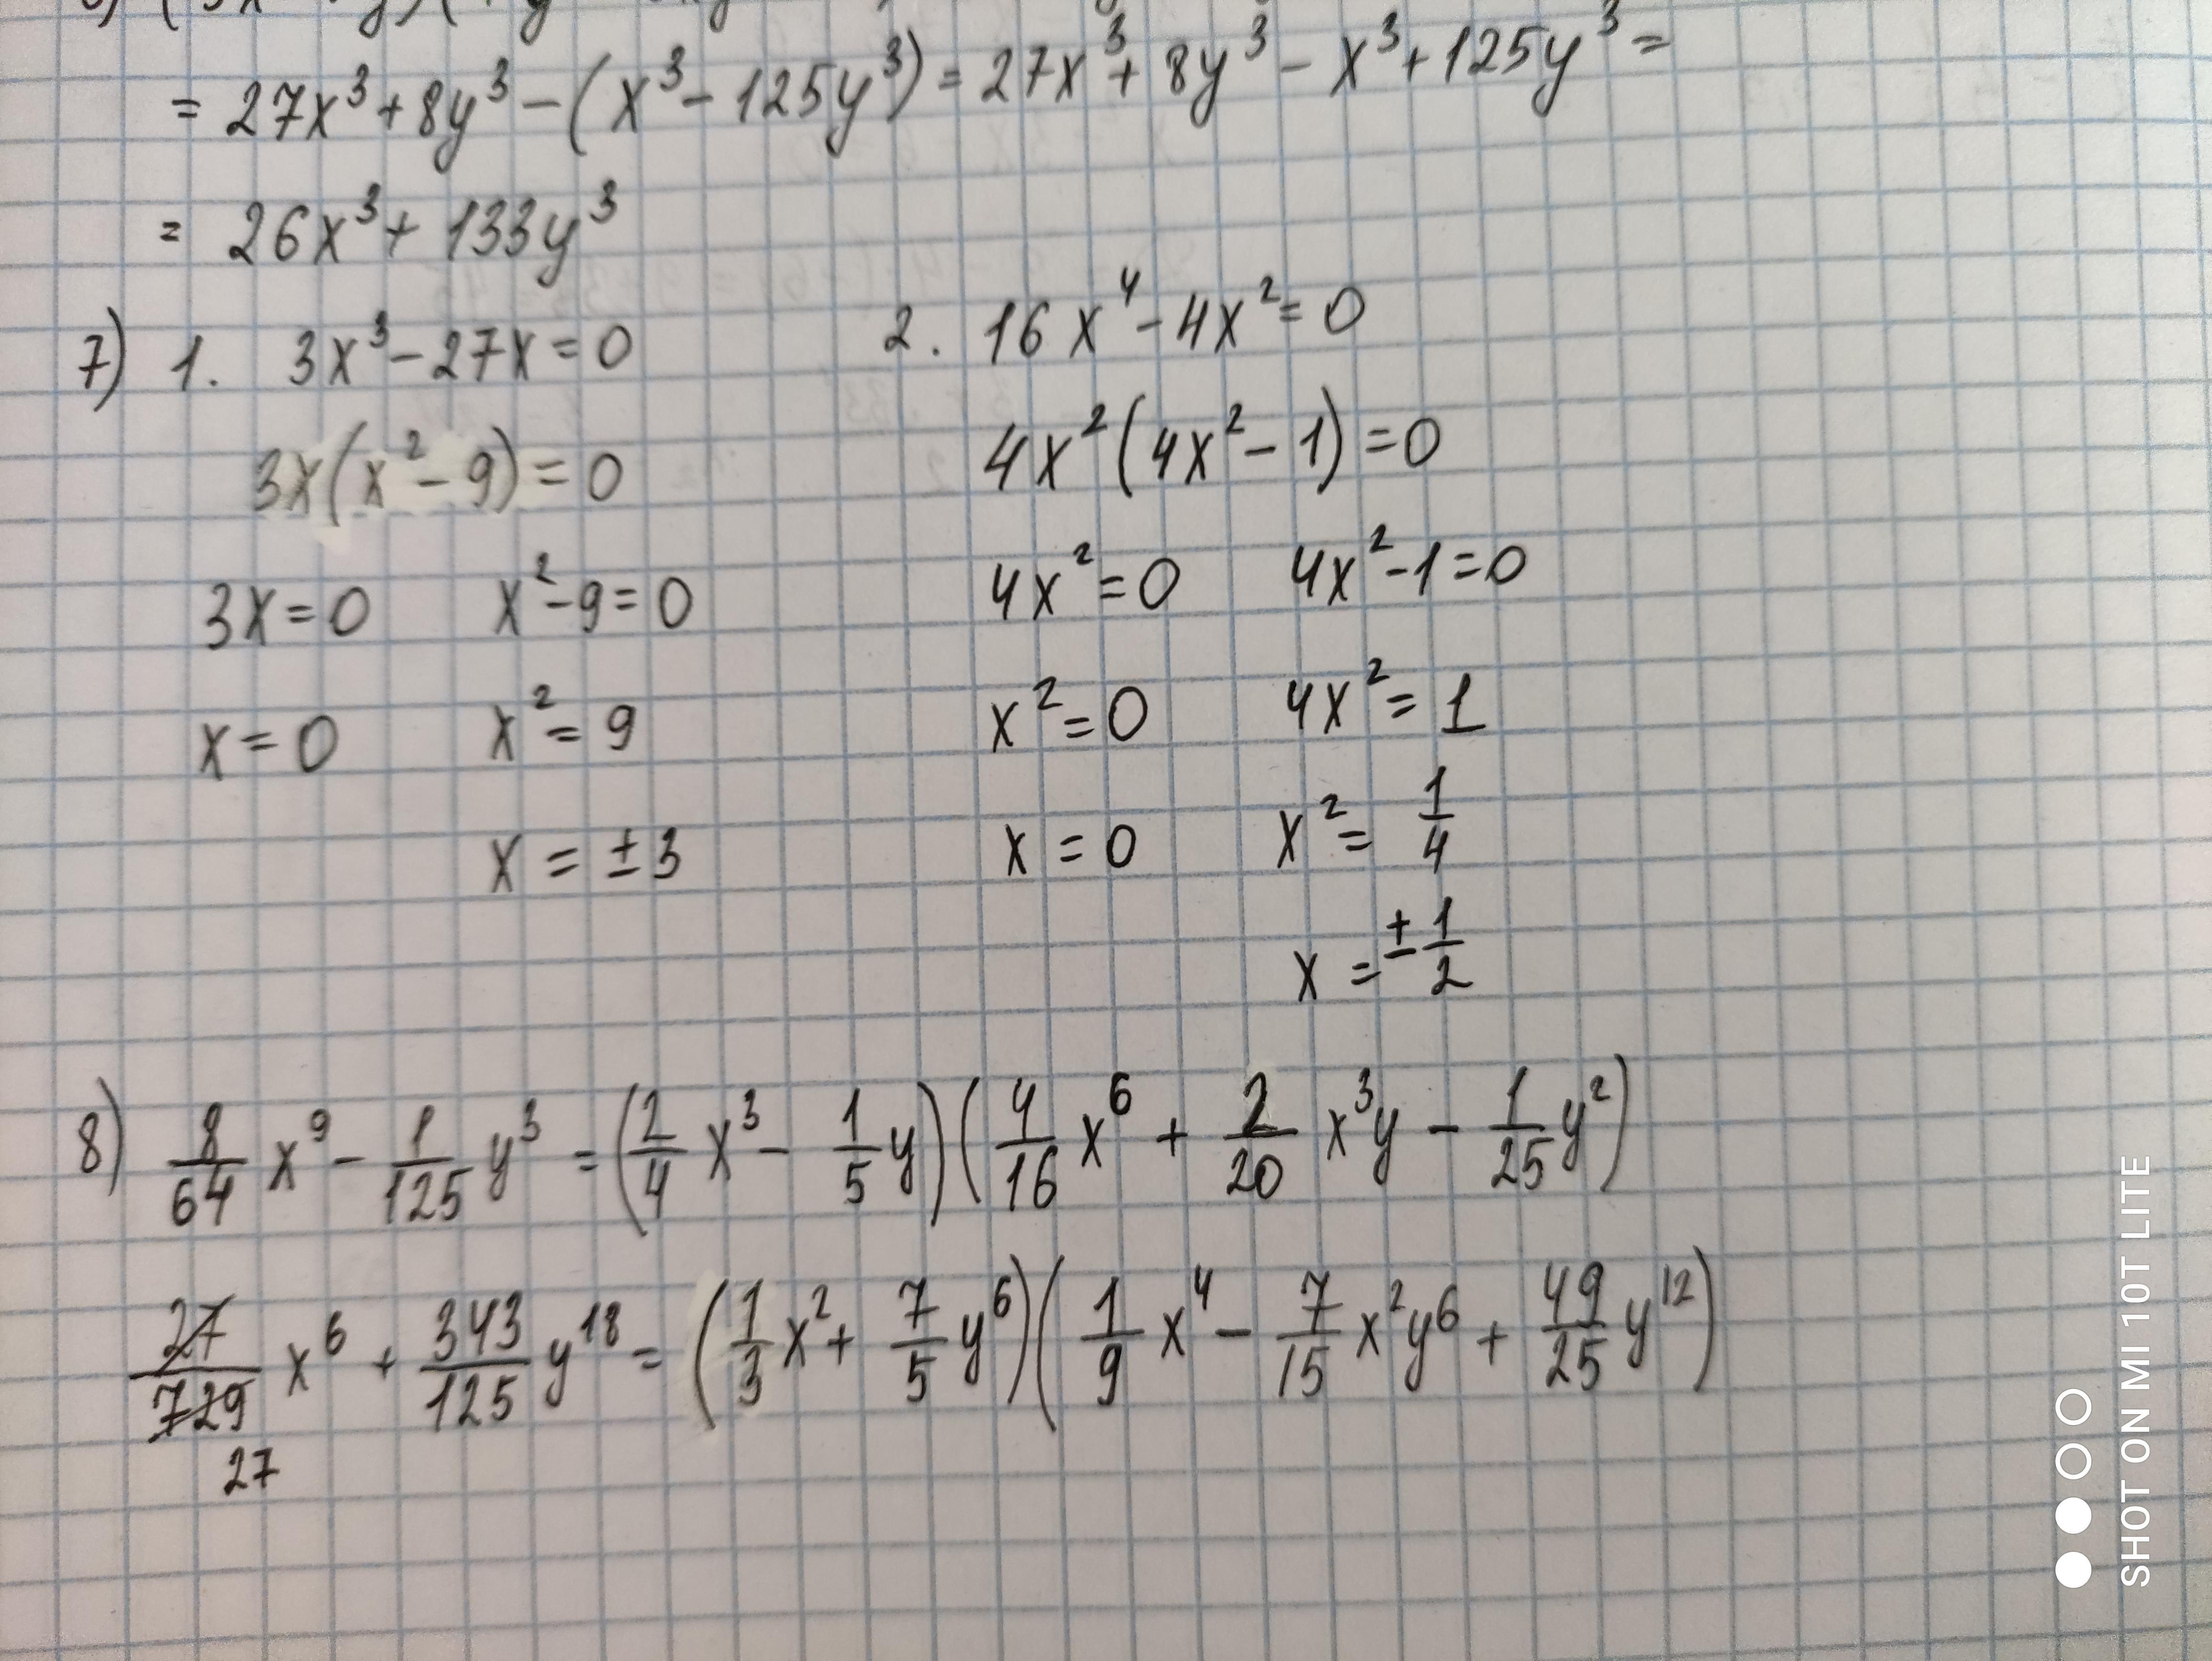 = 27x³ + 8y³ - (x³ - 125y³) = 27x³ + 8y³ - x³ + 125y³ =
= 26x³ + 133y³
7) 1. 3x³ - 27x = 0
3x(x² - 9) = 0
3x = 0 x² - 9 = 0
x = 0 x² = 9
x = ±3
2. 16x⁴ - 4x² = 0
4x²(4x² - 1) = 0
4x² = 0 4x² - 1 = 0
x² = 0 4x² = 1
x = 0 x² = 1/4
x = ±1/2
8) 8/64 x⁹ - 1/125 y³ = (2/4 x³ - 1/5 y)(4/16 x⁶ + 2/20 x³y - 1/25 y²)
27/729 x⁶ + 343/125 y¹⁸ = (1/3 x² + 7/5 y⁶)(1/9 x⁴ - 7/15 x²y⁶ + 49/25 y¹²)
27
SHOT ON MI 10T LITE